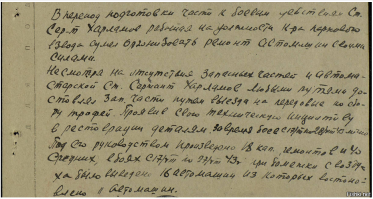 В период подготовки части к боевым действиям Ст.
Сер-т Харламов работая на должности К-ра паркового
взвода сумел организовать ремонт автомашин своими
силами.
Несмотря на отсутствия запасных частей и автома-
стерской Ст. Сержант Харламов любыми путями до-
ставлял зап. части путем выезда на передовые по сбо-
ру трофей. Проявив свою техническую инициативу
в реставрации деталям. За время боев с
Под его руководством произведено 18 кап. ремонтов и 40
средних, в боях с по 43 г. при бомбежке с возду-
ха было выведено 18 автомашин из которых востанов-
лено 11 автомашин.